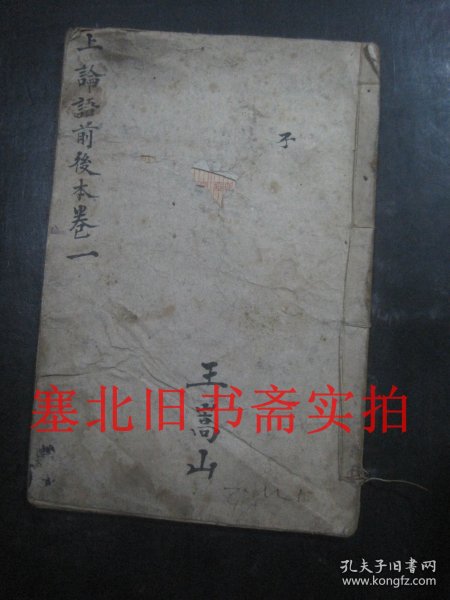 上論語前後本卷一
不
王嵩山
塞北旧书斋实拍
孔夫子旧书网
www.kongfz.com